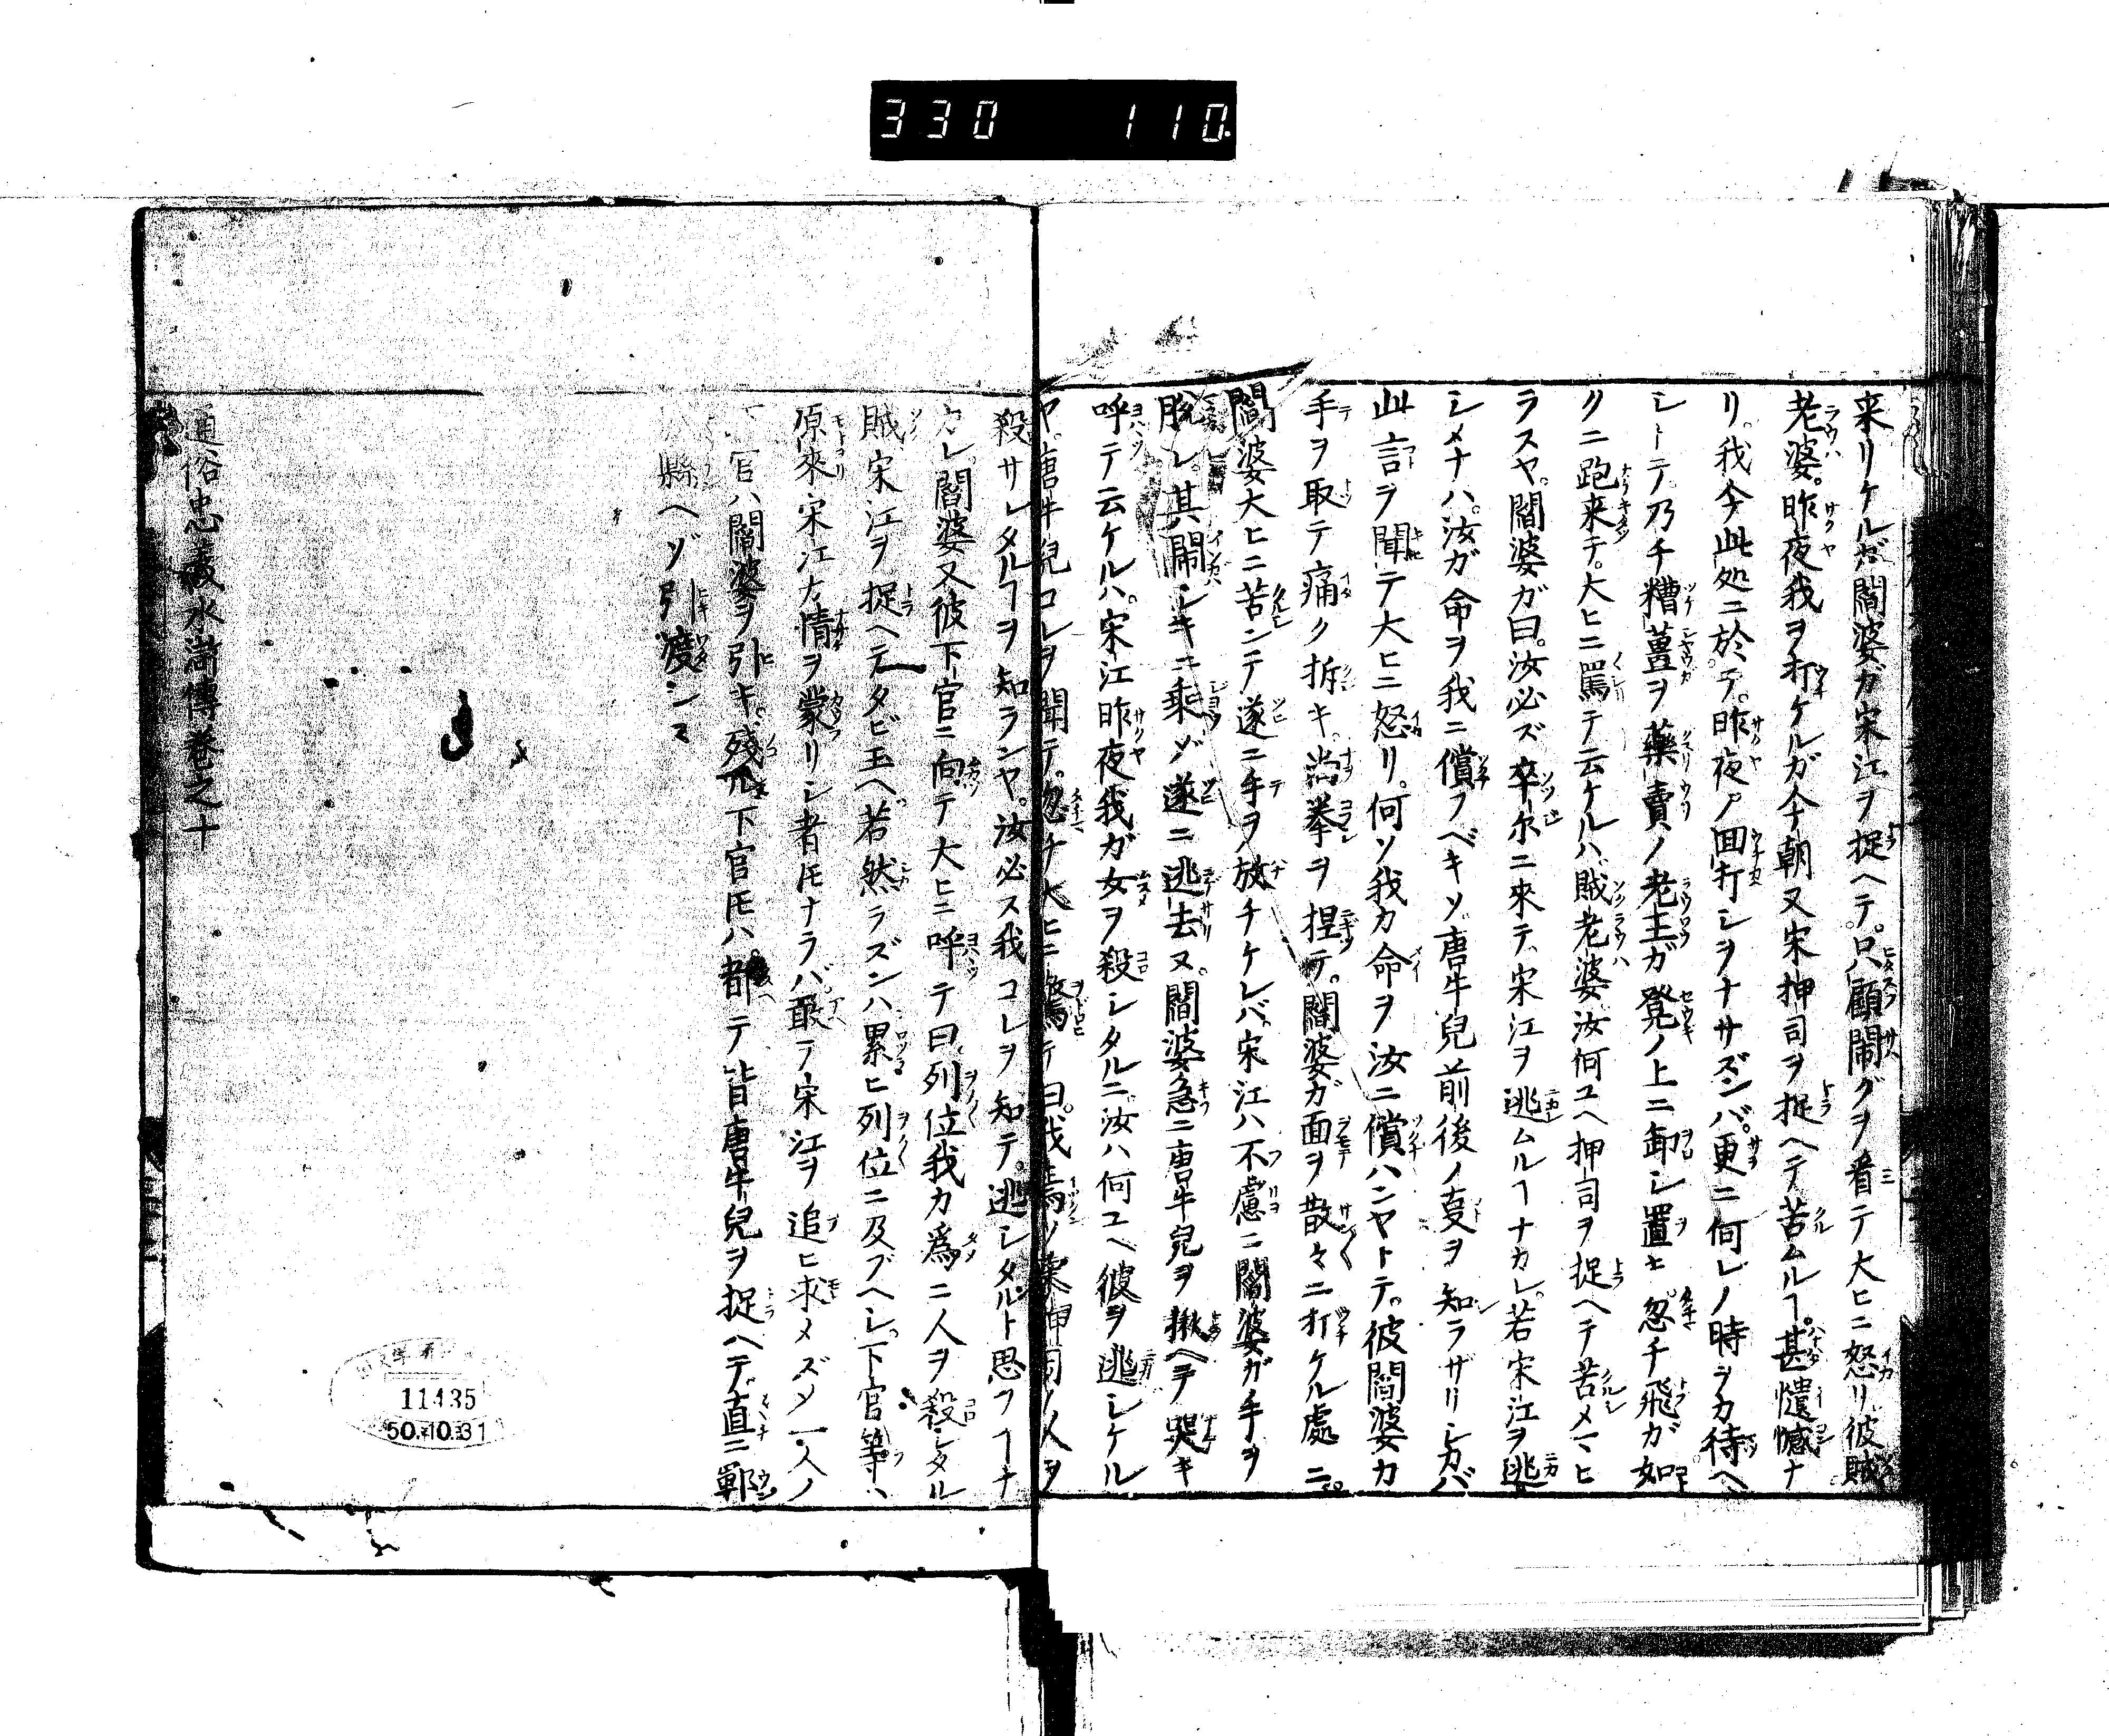 330 110
来リケルガ閻婆ガ宋江ヲ捉ヘテ。只顧鬧グヲ看テ大ヒニ怒リ彼賊
老婆。昨夜我ヲ打ケルガ今朝又宋押司ヲ捉ヘテ苦ムルヿ。甚憾ナ
リ。我今此処ニ於テ。昨夜ノ囬打シヲナサズンバ。更ニ何レノ時ヲカ待ヘ
シトテ乃チ糟薑ヲ藥賣ノ老王ガ凳ノ上ニ卸シ置ヒ。忽チ飛ガ如
クニ跑来テ。大ヒニ罵テ云ケルハ。賊老婆汝何ユヘ押司ヲ捉ヘテ苦メマヒ
ラスヤ。閻婆ガ曰。汝必ズ卒尓ニ來テ、宋江ヲ逃ムルヿナカレ。若宋江ヲ逃
シメナハ。汝ガ命ヲ我ニ償フベキソ。唐牛兒前後ノ叓ヲ知ラザリシカバ
此言ヲ聞テ大ヒニ怒リ。何ソ我カ命ヲ汝ニ償ハンヤトテ。彼閻婆カ
手ヲ取テ痛ク拆キ。尚拳ヲ捏テ。閻婆ガ面ヲ散々ニ打ケル處ニ。
閻婆大ヒニ苦ンテ遂ニ手ヲ放チケレバ。宋江ハ不慮ニ閻婆ガ手ヲ
脫レ。其鬧シキニ乘ジ遂ニ逃去ヌ。閻婆急ニ唐牛兒ヲ揪ヘテ哭キ
呼テ云ケルハ。宋江昨夜我ガ女ヲ殺シタルニ。汝ハ何ユヘ彼ヲ逃シケル
ヤ。唐牛兒コレヲ聞テ。忽チ大ヒニ驚テ曰。我焉ソ宋押司ノ人ヲ
殺サレタルヿヲ知ランヤ。汝必ス我コレヲ知テ。逃シタルト思フヿナ
カレ。閻婆又彼下官ニ向テ大ヒニ呼テ曰。列位我カ爲ニ人ヲ殺シタル
賊宋江ヲ捉ヘテタビ玉ヘ。若然ラズンハ累ヒ列位ニ及ブヘシ。下官等ハ
原來宋江カ情ヲ蒙リシ者トモナラバ。敢テ宋江ヲ追ヒ求メズ。一人ノ
下官ハ閻婆ヲ引キ。殘ル下官トモハ。都テ皆唐牛兒ヲ捉ヘテ直ニ鄆
縣ヘゾ引渡シヌ
通俗忠義水滸傳巻之十
11435
50.10.31